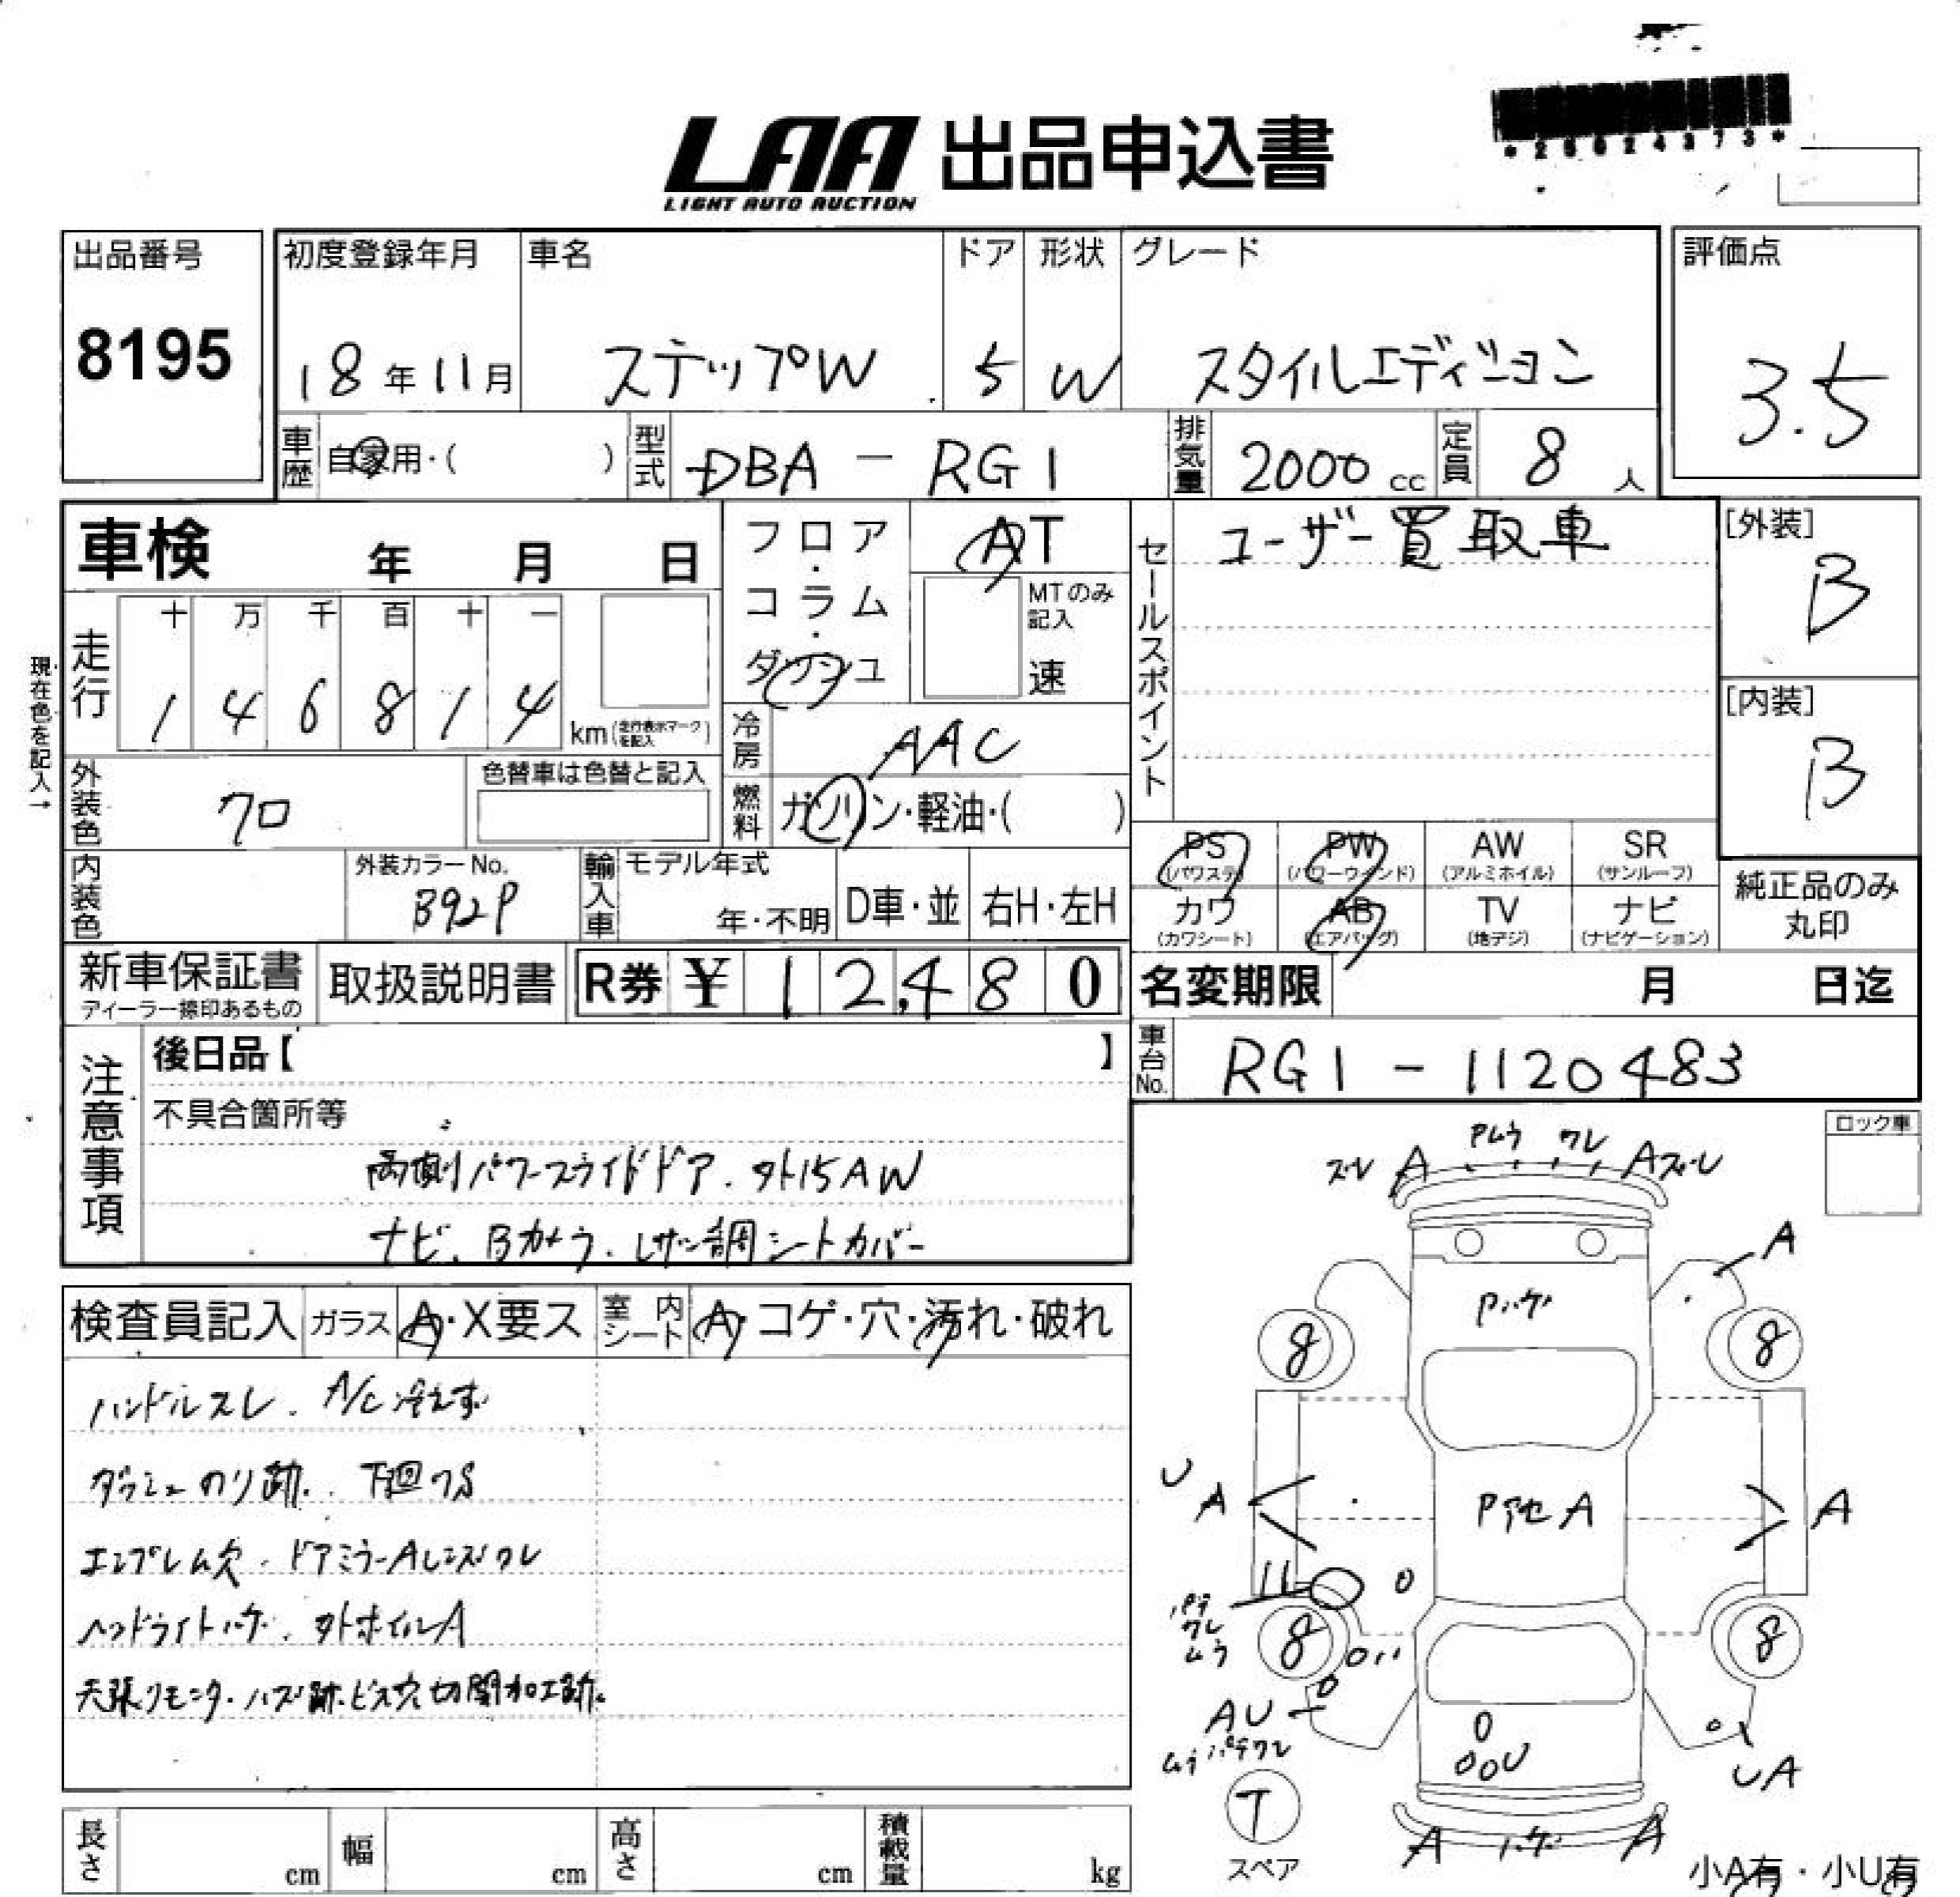 *25024373*
LAA 出品申込書
LIGHT AUTO AUCTION
出品番号 8195
初度登録年月 18年11月
車名 ステップW
ドア 5
形状 W
グレード スタイルエディション
評価点 3.5
車歴 自家用・( )
型式 DBA - RG1
排気量 2000 cc
定員 8 人
車検 年 月 日
フロア・コラム・ダッシュ
AT
MTのみ記入
速
セールスポイント ユーザー買取車
[外装] B
[内装] B
現在色を記入→
走行 十 万 千 百 十 一
1 4 6 8 1 4 km (走行表示マークを記入)
冷房 AAC
外装色 クロ
色替車は色替と記入
燃料 ガソリン・軽油・( )
内装色
外装カラーNo. B92P
輸入車 モデル年式
年・不明 D車・並 右H・左H
PS (パワステ) PW (パワーウインド) AW (アルミホイル) SR (サンルーフ)
カワ (カワシート) AB (エアバッグ) TV (地デジ) ナビ (ナビゲーション)
純正品のみ丸印
新車保証書
ディーラー捺印あるもの
取扱説明書
R券 ¥ 12,480
名変期限 月 日迄
車台No. RG1 - 1120483
注意事項
後日品【 】
不具合箇所等
両側パワースライドドア. 外15AW
ナビ. Bカメラ. レザー調シートカバー
検査員記入 ガラス A・X要ス 室内シート A・コゲ・穴・汚れ・破れ
ハンドルスレ. A/C冷えず
ダッシュのり跡. 下廻フS
エンブレム欠. ドアミラーAレンズワレ
ヘッドライトハゲ. 外ホイルA
天張リモニタ・ハズ跡.ビス穴切開加工跡.
ロック車
ズレ A Pムラ ワレ Aズレ
A
Pハゲ
8 8
U
A
P アセ A
A
8 8
パテ
ワレ
ムラ
AU
ムラ パテワレ
U
UA
T
スペア
A ハゲ A
小A有・小U有
長さ cm 幅 cm 高さ cm 積載量 kg